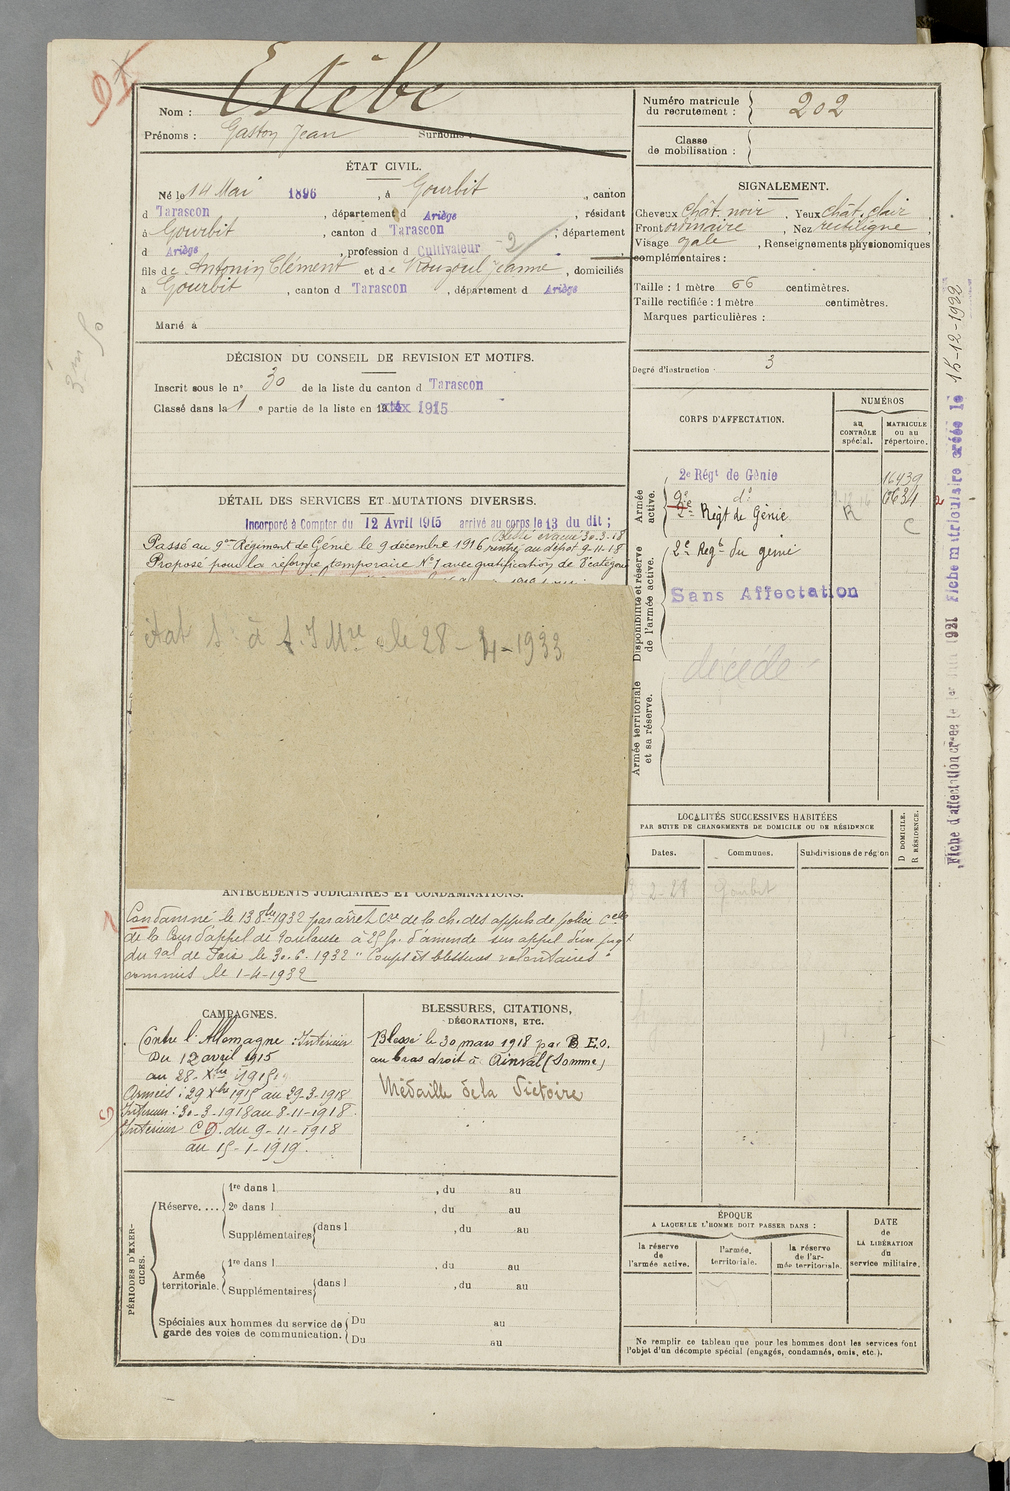 DI
Nom : Estèbe
Prénoms : Gaston Jean Surnoms :
Numéro matricule du recrutement : 202
Classe de mobilisation :
ÉTAT CIVIL.
Né le 14 Mai 1896, à Gourbit, canton
d Tarascon, département d Ariège, résidant
à Gourbit, canton d Tarascon, département
d Ariège, profession d Cultivateur - 2
fils de Antonin Clément et de Rouzoul Jeanne, domiciliés
à Gourbit, canton d Tarascon, département d Ariège
Marié à
SIGNALEMENT.
Cheveux chât. noir, Yeux chât. clair,
Front ordinaire, Nez rectiligne,
Visage ovale, Renseignements physionomiques
complémentaires :
Taille : 1 mètre 66 centimètres.
Taille rectifiée : 1 mètre centimètres.
Marques particulières :
Degré d'instruction : 3
DÉCISION DU CONSEIL DE REVISION ET MOTIFS.
Inscrit sous le n° 30 de la liste du canton d Tarascon
Classé dans la 1 e partie de la liste en 1915
DÉTAIL DES SERVICES ET MUTATIONS DIVERSES.
Incorporé à Compter du 12 Avril 1915 arrivé au corps le 13 du dit ;
Blessé évacué 30.3.18
Passé au 9me Régiment de Génie le 9 décembre 1916 rentré au dépôt 9-11-18
Proposé pour la réforme temporaire N° 1 avec gratification de 8e catégorie
à le 28-4-1933
CORPS D'AFFECTATION.
NUMÉROS
au CONTRÔLE spécial.
MATRICULE ou au répertoire.
Armée active.
2e Régt de Génie 16439
9e d° 6634
2e Régt de Génie R C
Disponibilité et réserve de l'armée active.
2e Regt du génie
Sans Affectation
décédé
Armée territoriale et sa réserve.
Fiche matriculaire créée le 15-12-1922
Fiche d'affectation créée le 1er 1921
LOCALITÉS SUCCESSIVES HABITÉES
PAR SUITE DE CHANGEMENTS DE DOMICILE OU DE RÉSIDENCE
Dates. Communes. Subdivisions de région
D DOMICILE.
R RÉSIDENCE.
2-21 Gourbit
ANTÉCÉDENTS JUDICIAIRES ET CONDAMNATIONS.
Condamné le 13 8bre 1932 par arrêt Cre de la ch. des appels de police Celle
de la Cour d'appel de Toulouse à 25 fr. d'amende sur appel d'un jugt
du Tal de Foix le 30.6.1932 "Coups et blessures volontaires"
commis le 1-4-1932
CAMPAGNES.
Contre l'Allemagne : Intérieur
Du 12 avril 1915
au 28-Xbre 1915
Armées : 29 Xbre 1915 au 29-3-1918
Intérieur : 30-3-1918 au 8-11-1918
CD
Intérieur CD. du 9-11-1918
au 15-1-1919.
BLESSURES, CITATIONS,
DÉCORATIONS, ETC.
Blessé le 30 mars 1918 par E.O.
au bras droit à Ainval (Somme)
Médaille de la Victoire
PÉRIODES D'EXERCICES.
Réserve....
1re dans l , du au
2e dans l , du au
Supplémentaires dans l , du au
Armée territoriale.
1re dans l , du au
Supplémentaires dans l , du au
Spéciales aux hommes du service de garde des voies de communication.
Du au
Du au
ÉPOQUE
A LAQUELLE L'HOMME DOIT PASSER DANS :
la réserve de l'armée active.
l'armée territoriale.
la réserve de l'armée territoriale.
DATE de LA LIBÉRATION du service militaire.
Ne remplir ce tableau que pour les hommes dont les services font
l'objet d'un décompte spécial (engagés, condamnés, omis, etc.).